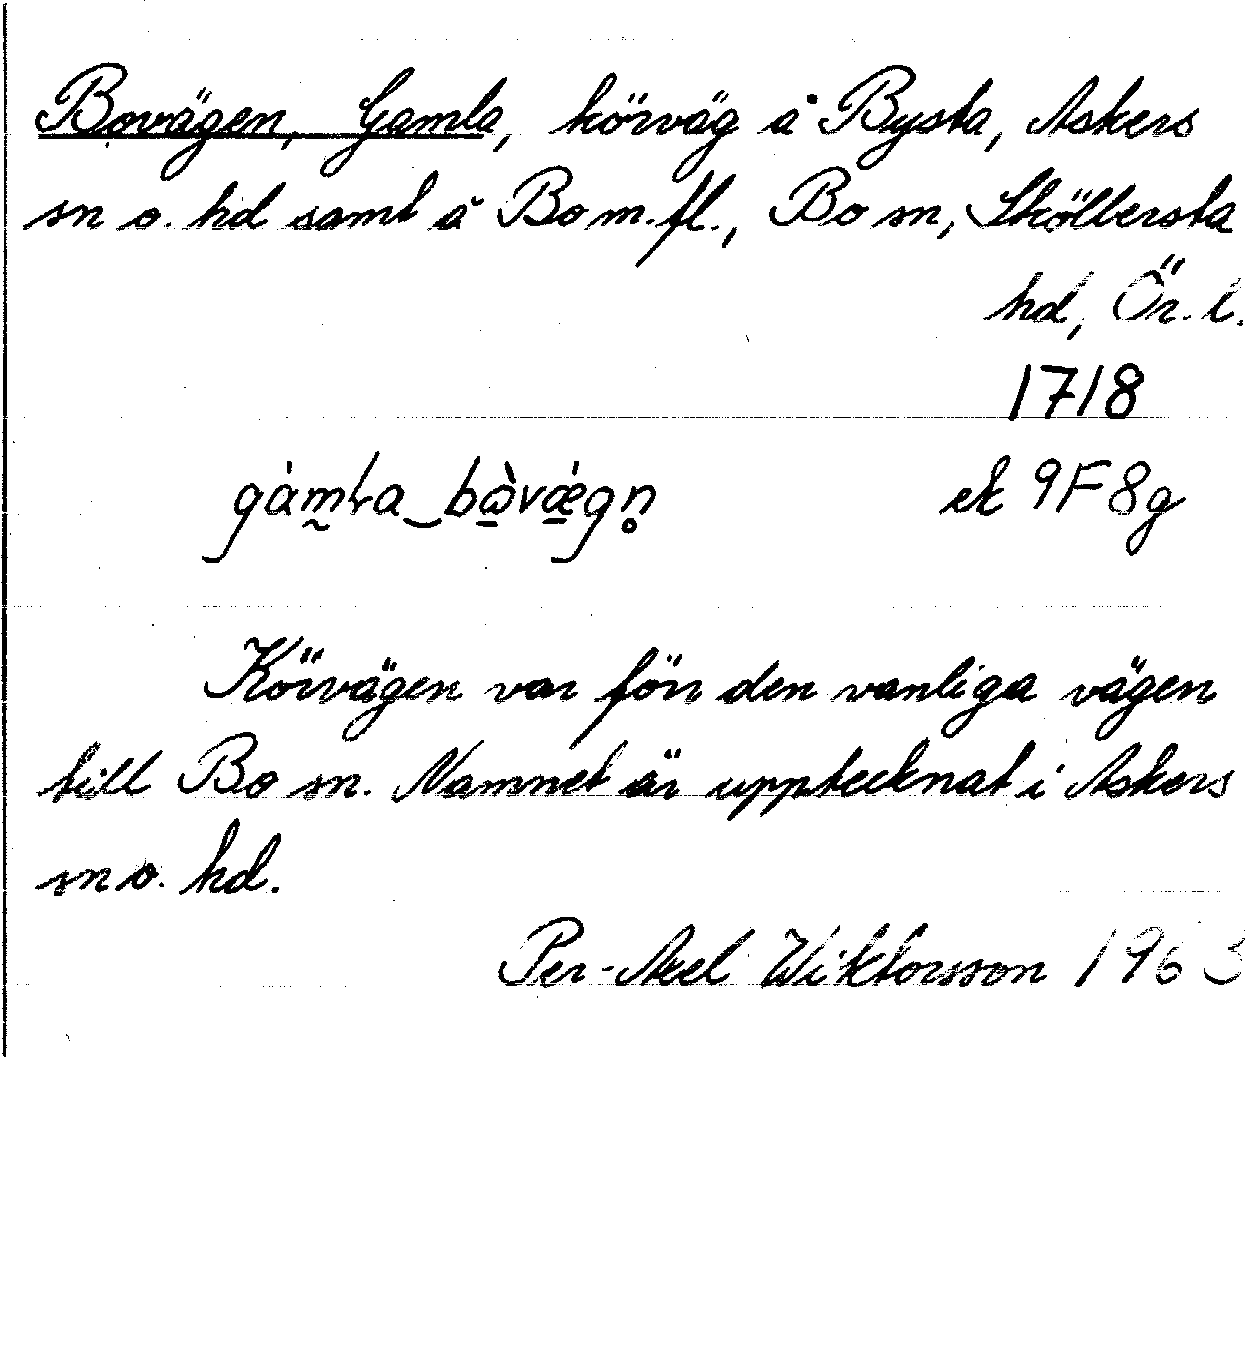 Bovägen, Gamla, körväg å Bysta, Askers
sn o. hd samt å Bo m.fl., Bo sn, Sköllersta
hd, Ör. l.
1718
gàm̰ɫa‿bὼ̠vǽ̠gn̥ ek 9F8g
Körvägen var förr den vanliga vägen
till Bo sn. Namnet är upptecknat i Askers
sn o. hd.
Per-Axel Wiktorsson 1963